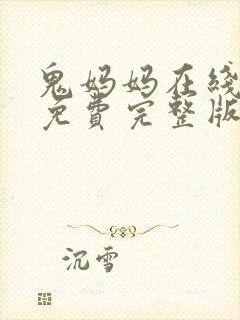 鬼妈妈在线
免費完整版
沉雪